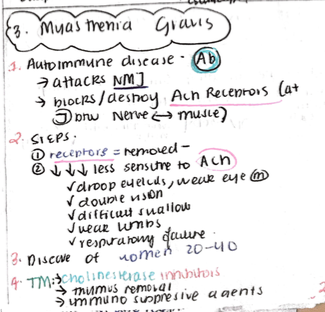 3. Myasthenia Gravis
1. Autoimmune disease - Ab
→ attacks NMJ
→ blocks/destroy Ach Receptors (at
J) btw Nerve ↔ muscle)
2. STEPS.
① receptors = removed -
② ↓↓↓ less sensitive to Ach
✓ droop eyelids, weak eye m
✓ double vision
✓ difficult swallow
✓ weak limbs
✓ respiratory failure.
3. Disease of women 20-40
4. TM:→ cholinesterase inhibitors
→ thymus removal
→ immuno suppresive agents